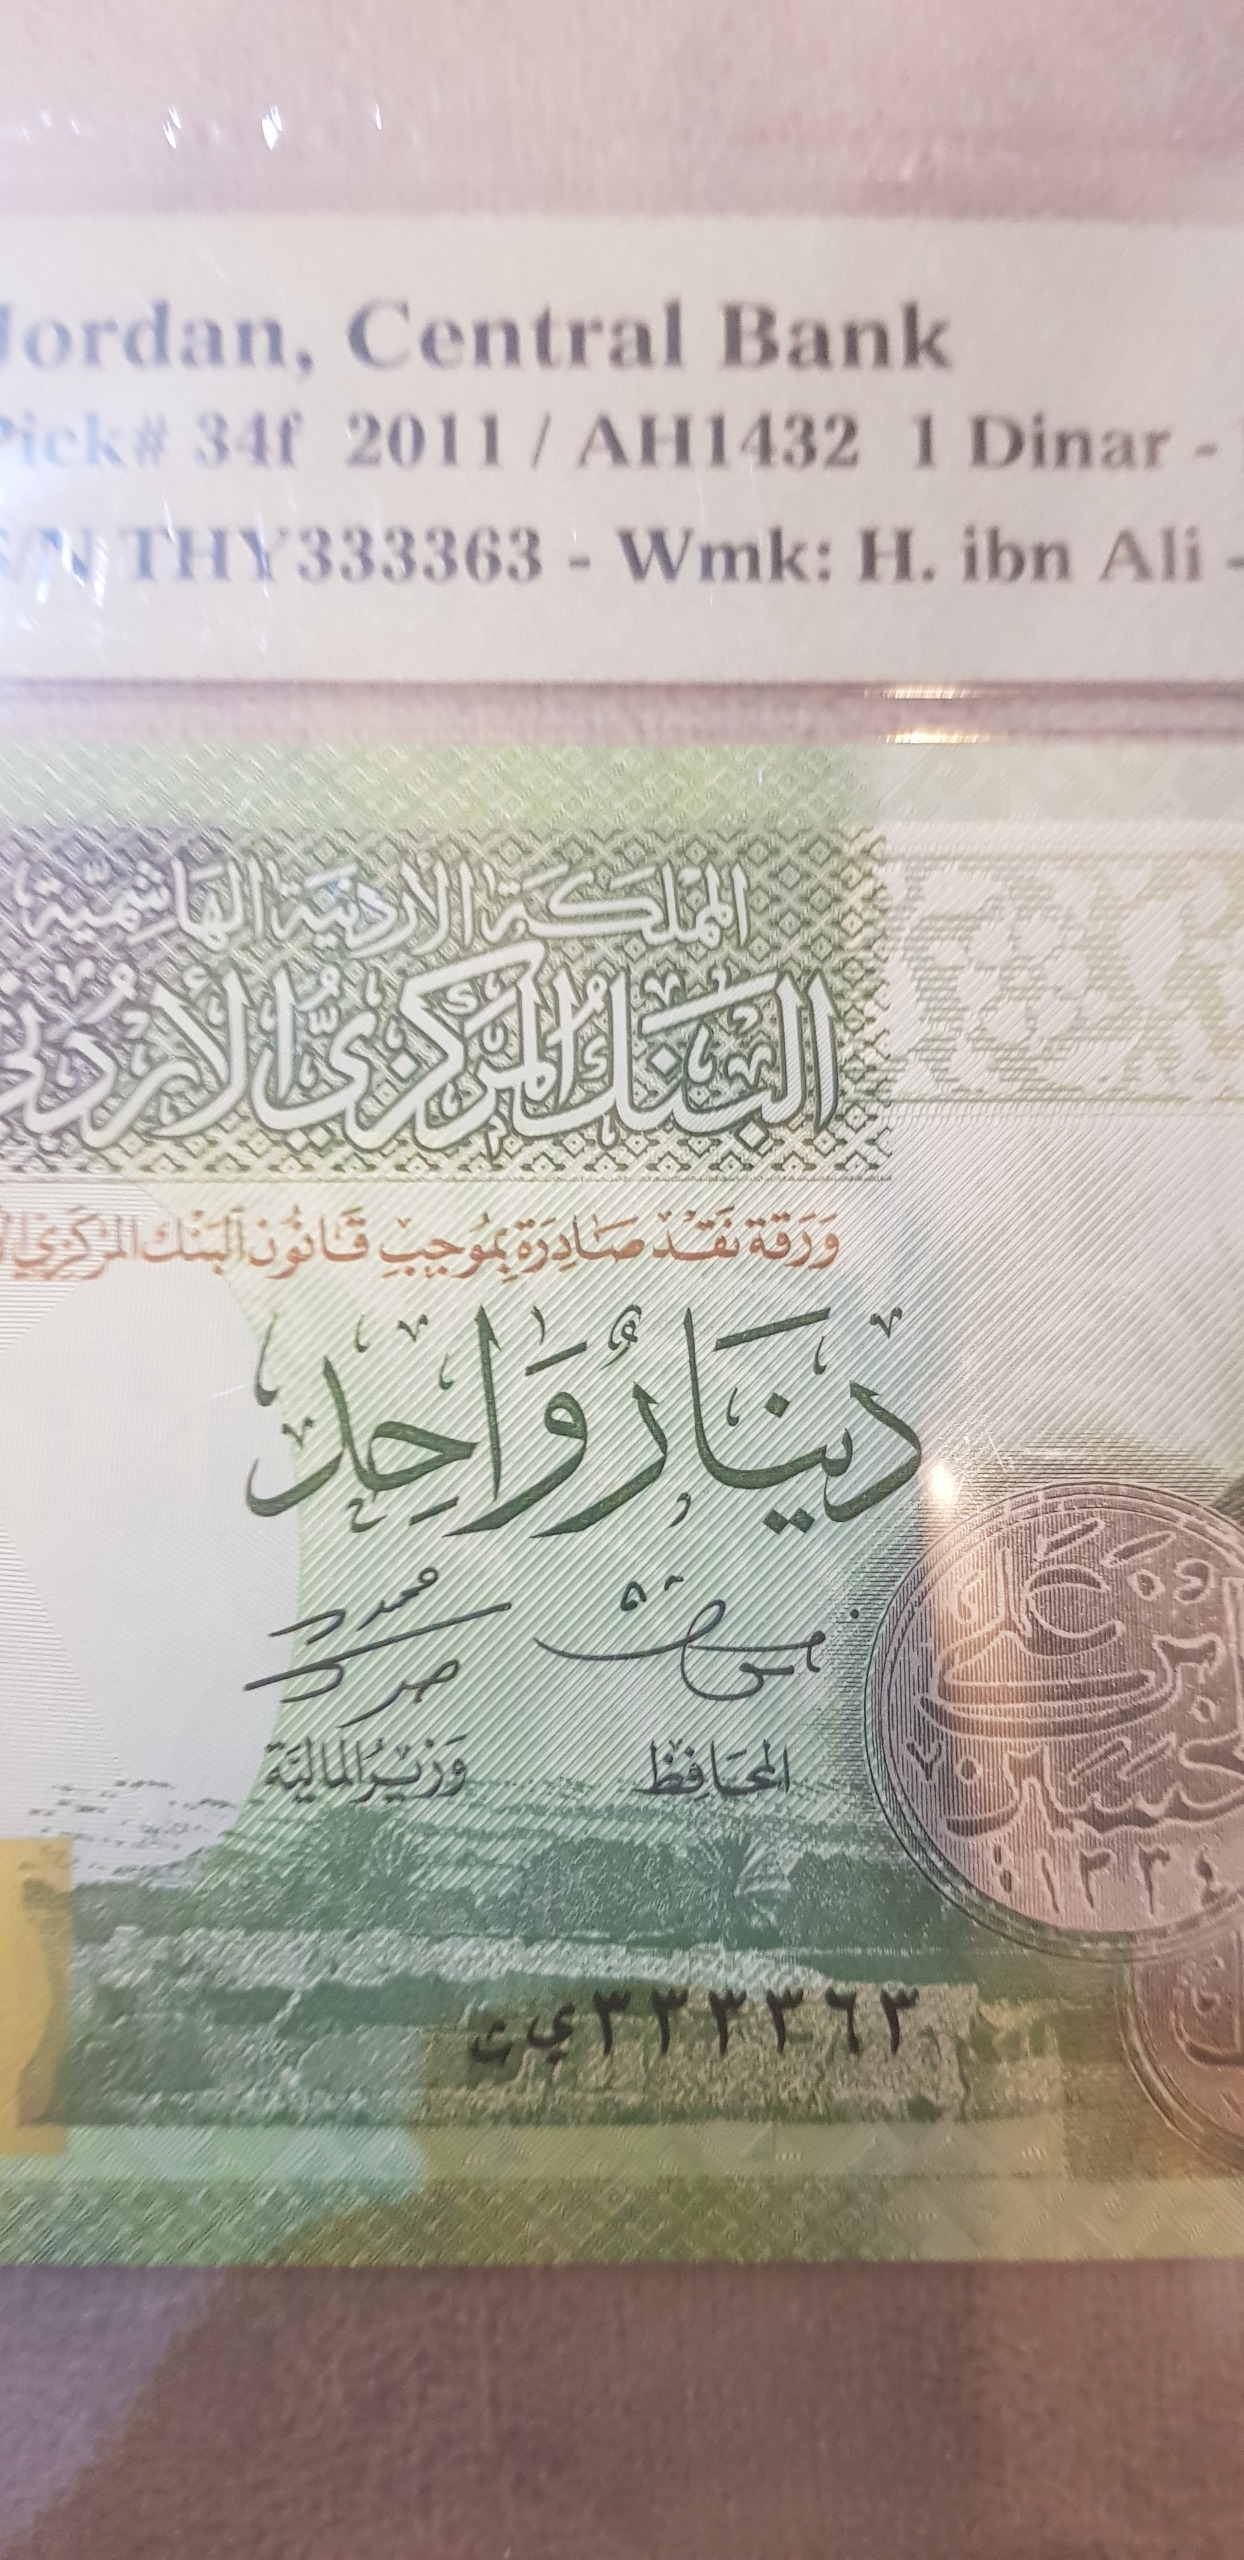 Jordan, Central Bank
Pick# 34f 2011 / AH1432 1 Dinar -
S/N THY333363 - Wmk: H. ibn Ali -
المملكة الأردنية الهاشمية
البنك المركزي الأردني
وَرَقة نَقْد صَادِرَة بمُوجبِ قَانُون البَنْك المركزي
دينارٌ وَاحِد
المحَافِظ
وَزيرُ المالية
الحسين بن
١٣٣٤
٣٣٣٣٦٣